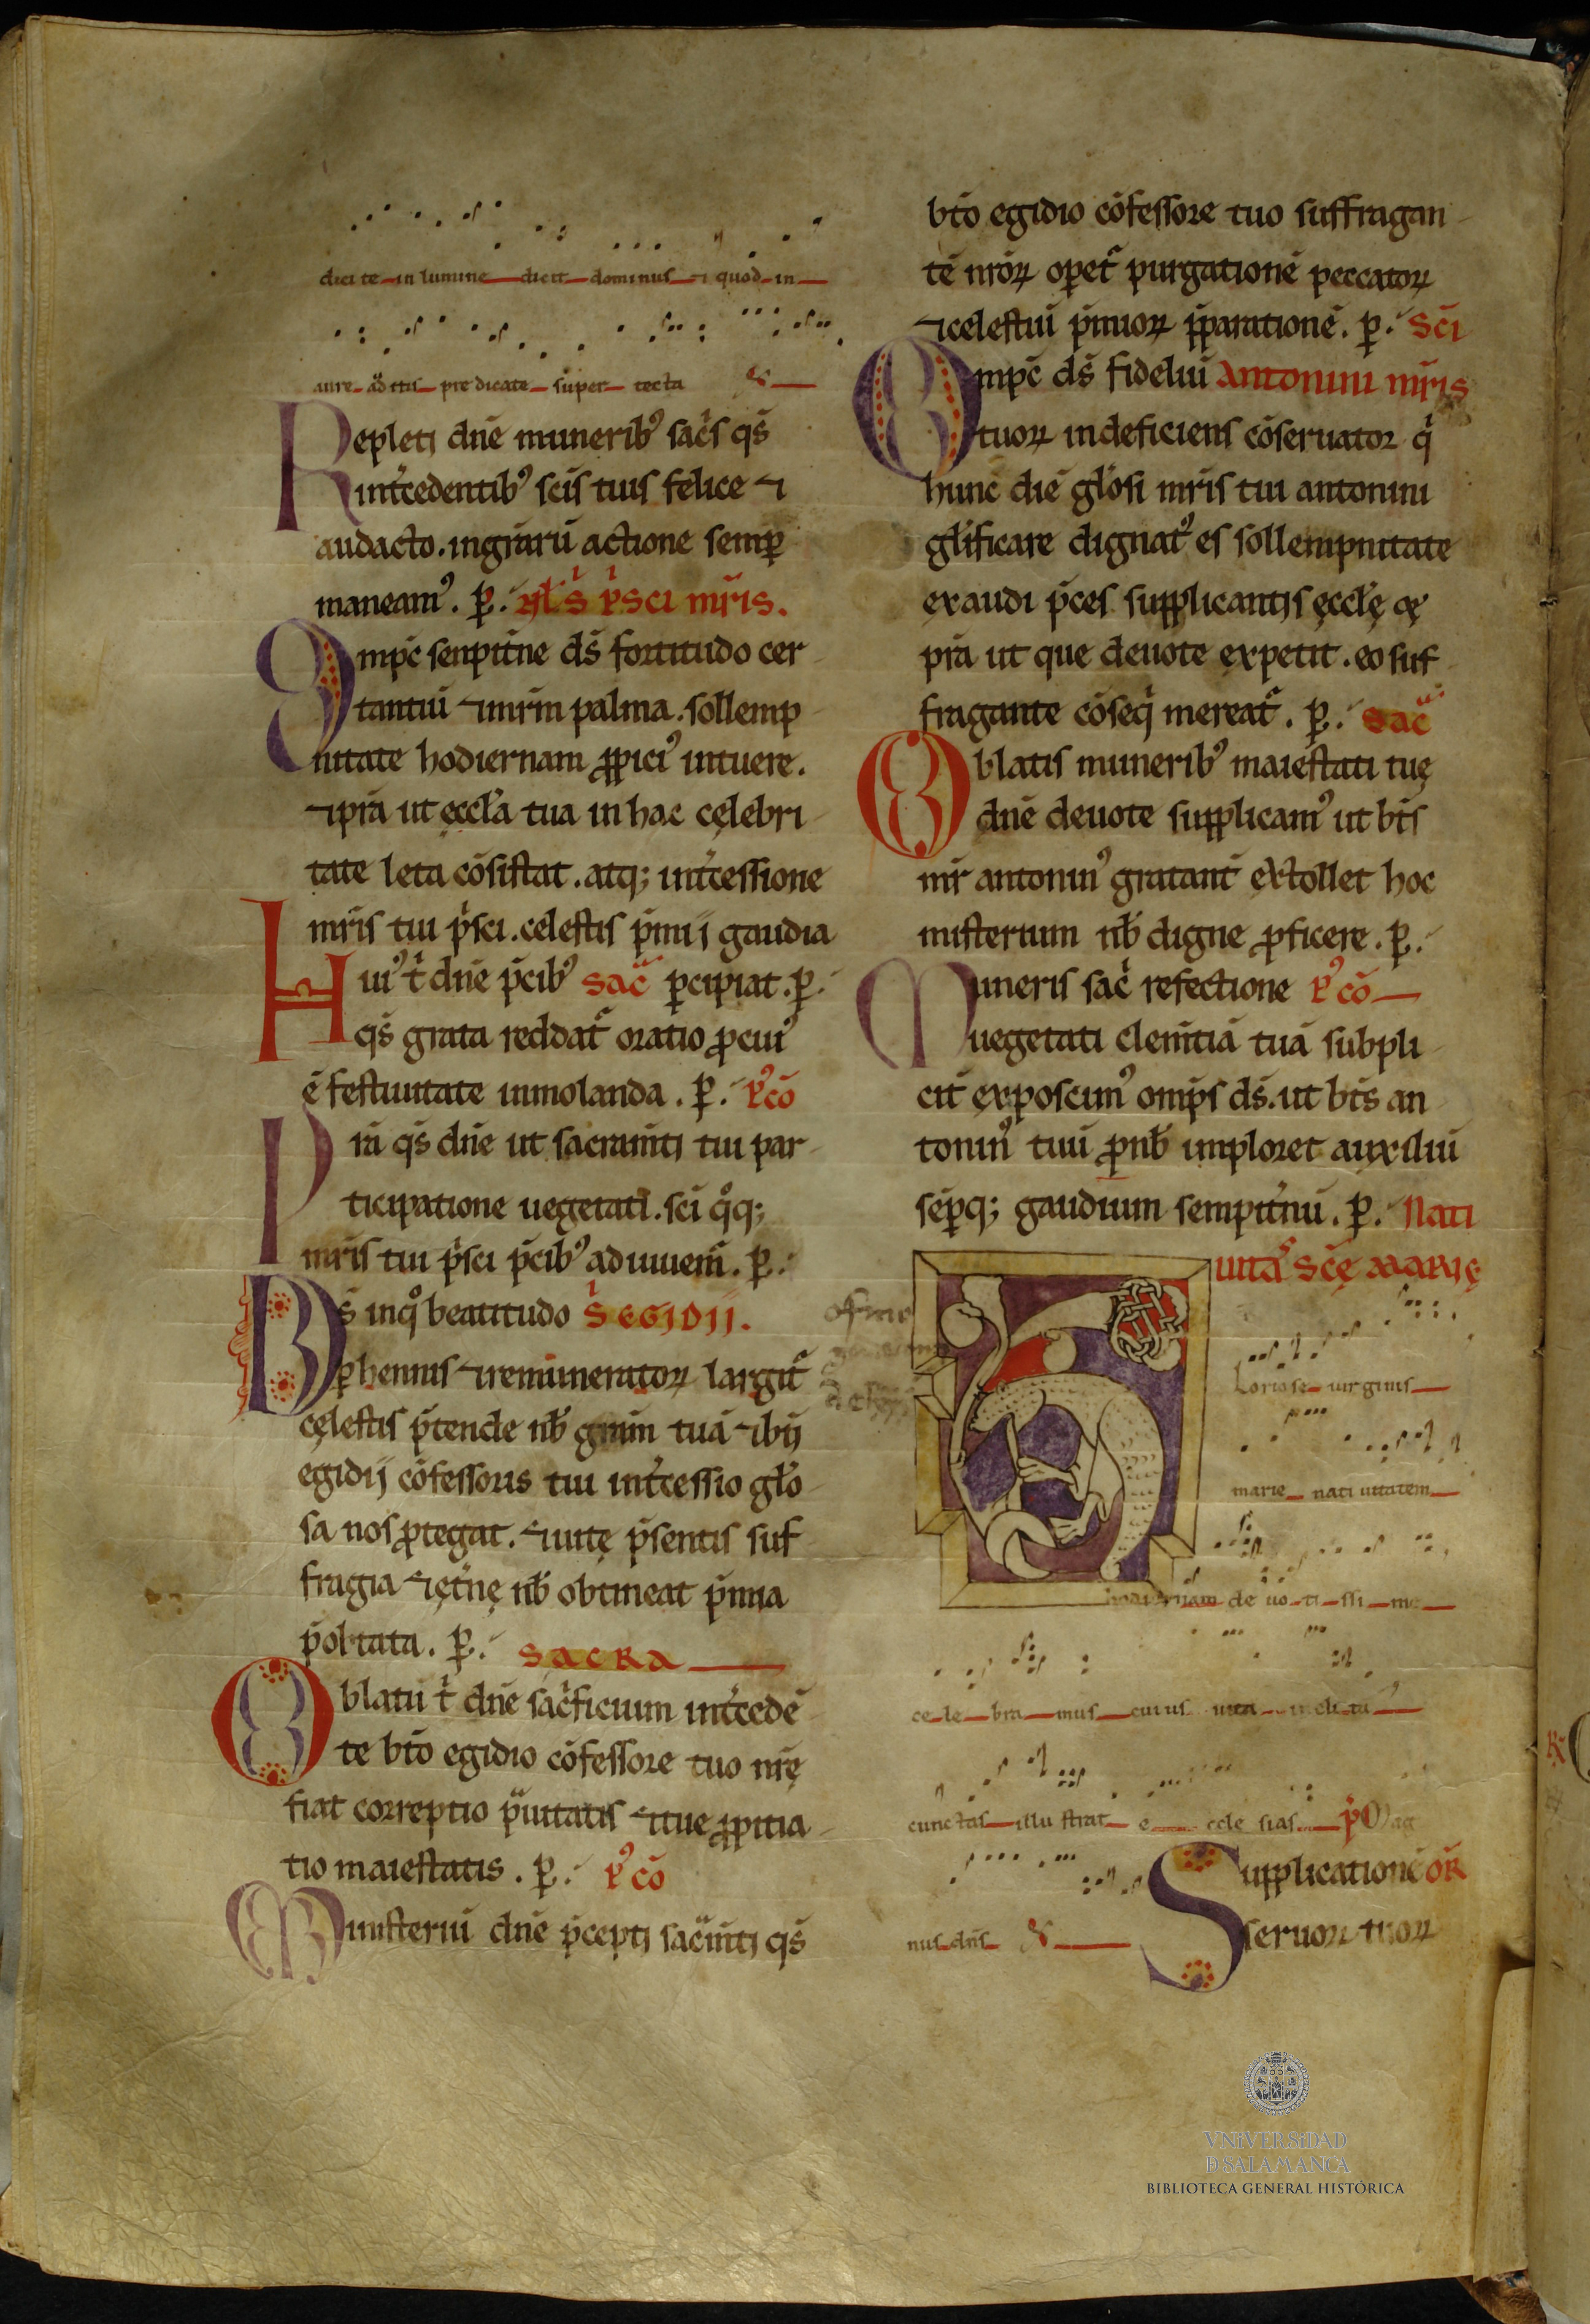 dici te in lumine dicit dominus ⁊ quod in
aure aditis predicate super tecta
Repleti dn̄e munerib᾽ sac̄s q̄s
int̄cedentib᾽ sc̄is tuis felice ⁊
audacto. in gr̄aru᷑ actione semꝑ
maneam᾽. ꝑ. kl̄ s̄ p͛sci mr̄is.
Omp̄c senpit̄ne ds̄ fortitudo cer
tantiū ⁊ mr̄m palma. sollemp
nitate hodiernam ꝓpici᾽ intuere.
⁊ p̄ra ut eccl̄a tua in hac cęlebri
tate leta cōsistat. atq; int̄cessione
mr̄is tui p͛sci. celestis p̄mij gaudia
Hui᾽ t͛ dn̄e p̄cib᾽ sac̄ ꝑcipiat. ꝑ.
q̄s grata reddat᷑ oratio ꝓ cui᾽
ē festiuitate inmolanda. ꝑ. p᾽cō
Pr̄a q̄s dn̄e ut sacram̄ti tui par
ticipatione uegetati. sc̄i qͦq;
mr̄is tui p͛sci p̄cib᾽ adiuuem̄. ꝑ.
Ds̄ inqͦ beatitudo s̄ EGIDIJ.
ꝑhennis ⁊ remuneratoꝝ largit᷑
cęlestis p̄tende nb̄ gr̄am tuā ⁊ ibīj
egidij cōfessoris tui int̄cessio glō
sa nos ꝓtegat. ⁊ uitę p̄sentis suf
fragia ⁊ ęt̄nę nb̄ obtineat p̄mia
p̄obtata. ꝑ. SACRA
Oblatū t͛ dn̄e sac͛ficium int̄cedē
te bt̄o egidio cōfessore tuo nr̄ę
fiat correptio p̄uitatis ⁊ tue ꝓpitia
tio maiestatis. ꝑ. p᾽cō
Misteriū dn̄e p̄cepti sac̄m̄ti q̄s
bt̄o egidio cōfessore tuo suffragan
tē nr̄oꝝ oꝑet᷑ purgationē peccatoꝝ
⁊ celestiū p̄mioꝝ p̄parationē. ꝑ. Sc̄i
Omp̄c ds̄ fideliū Antonini mr̄is
tuoꝝ indeficiens cōseruator q͛
hunc diē glōsi mr̄is tui antonini
gl̄ificare dignat᾽ es sollempnitate
exaudi p̄ces supplicantis ęccl̄ę
p̄ra ut que deuote expetit. eo suf
fragante cōseq͛ mereat᷑. ꝑ. sac̄
Oblatis munerib᾽ maiestati tuę
dn̄e deuote supplicam᾽ ut bt̄s
mr̄ antonin᾽ gratant̄ extollet hoc
misterium nb̄ digne ꝓficere. ꝑ.
Muneris sac͛ refectione p᾽cō
uegetati clem̄tiā tuā subpli
cit̄ exposcim᾽ omp̄s ds̄. ut bt̄s an
tonin᾽ tuū ꝓ nb̄ imploret auxiliū
sēꝑq; gaudium sempit̄nū. ꝑ. Nati
uita᾽ Scę MARIę
Gloriose uirginis
marie natiuitatem
hodiernam deuotissime
celebramus cuius uita inclita
cunctas illustrat ecclesias p̄ Mag
nus dn̄s
Supplicationē or̄
seruoꝝ tuoꝝ
VNiVERSiDAD
D SALAMANCA
BIBLIOTECA GENERAL HISTÓRICA